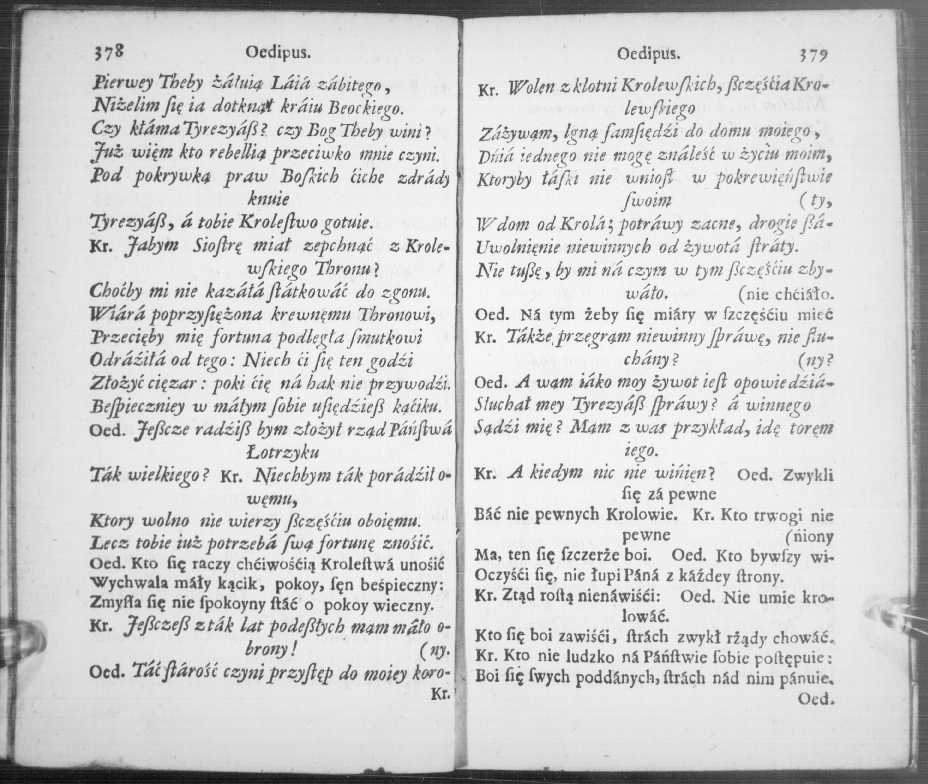 378 Oedipus.
Pierwey Theby żáłuią Láiá zábitego,
Niżelim ſię ia dotknął kráiu Beockiego.
Czy kłáma Tyrezyáß? czy Bog Theby wini?
Już więm kto rebellią przeciwko mnie czyni.
Pod pokrywką praw Boſkich ćiche zdrády
knuie
Tyrezyáß, á tobie Kroleſtwo gotuie.
Kr. Jabym Sioſtrę miał zepchnąć z Krole-
wſkiego Thronu?
Choćby mi nie kazáłá ſtátkowáć do zgonu.
Wiárá poprzyſiężona krewnęmu Thronowi,
Przecięby mię fortuna podległa ſmutkowi
Odráźiłá od tego: Niech ći ſię ten godźi
Złożyć cięzar: poki ćię ná hak nie przywodźi.
Beſpieczniey w máłym ſobie uſiędźieß kąćiku.
Oed. Jeßcze radźiß bym złożył rząd Páńſtwá
Łotrzyku
Ták wielkiego? Kr. Niechbym ták porádźił o-
węmu,
Ktory wolno nie wierzy ßczęśćiu oboięmu.
Lecz tobie iuż potrzebá ſwą fortunę znośić.
Oed. Kto ſię raczy chćiwośćią Kroleſtwá unośić
Wychwala máły kącik, pokoy, ſęn beśpieczny:
Zmyſla ſię nie ſpokoyny ſtáć o pokoy wieczny.
Kr. Jeßczeß z ták lat podeßłych mąm máło o-
brony! (ny.
Oed. Táć ſtárość czyni przyſtęp do moiey koro-
Kr.
Oedipus. 379
Kr. Wolen z kłotni Krolewſkich, ßczęśćia Kro-
lewſkiego
Záżywąm, lgną ſamſiędźi do domu moiego,
Dńiá iednego nie mogęználeść w życiu moim,
Ktoryby łáſki nie wnioſł w pokrewięńſtwie
ſwoim (ty,
W dom od Krolá; potráwy zacne, drogie ßá-
Uwolnięnie niewinnych od żywotá ſtráty.
Nie tußę, by mi ná czym w tym ßczęśćiu zby-
wáło. (nie chćiáło.
Oed. Ná tym żeby ſię miáry w ſzczęśćiu mieć
Kr. Tákże przegrąm niewinny ſpráwę, nie ſłu-
chány? (ny?
Oed. A wąm iáko moy żywot ieſt opowiedźiá-
Słuchał mey Tyrezyáß ſpráwy? á winnego
Sądźi mię? Mąm z was przykład, idę toręm
iego.
Kr. A kiedym nic nie wińięn? Oed. Zwykli
ſię zá pewne
Báć nie pewnych Krolowie. Kr. Kto trwogi nie
pewne (ńiony
Ma, ten ſię ſzczerże boi. Oed. Kto bywſzy wi-
Oczyśći ſię, nie łupi Páná z káżdey ſtrony.
Kr. Ztąd roſtą nienáwiśći: Oed. Nie umie kro-
lowáć.
Kto ſię boi zawiśći, ſtrách zwykł rżądy chowáć.
Kr. Kto nie ludzko ná Páńſtwie ſobie poſtępuie:
Boi ſię ſwych poddánych, ſtrách nád nim pánuie.
Oed.